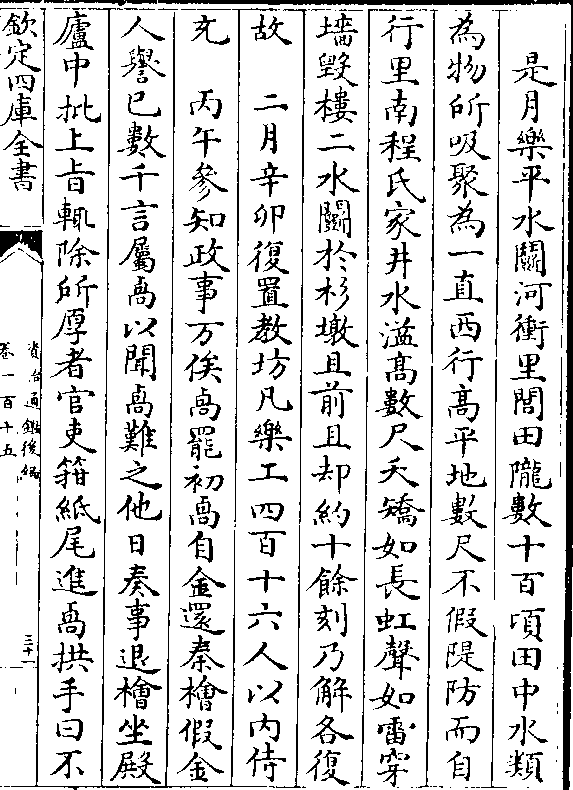 是月樂平水鬬河衝里閭田隴數十百頃田中水類
為物所吸聚為一直西行高平地數尺不假隄防而自
行里南程氏家井水溢高數尺夭矯如長虹聲如雷穿
墻毀樓二水鬬於杉墩且前且却約十餘刻乃解各復
故　二月辛卯復置教坊凡樂工四百十六人以内侍
充　丙午參知政事万俟卨罷初卨自金還秦檜假金
人譽已數千言屬卨以聞卨難之他日奏事退檜坐殿
廬中批上旨輒除所厚者官吏箝紙尾進卨拱手曰不
欽定四庫全書
資治通鑑後編
卷一百十五
三十一